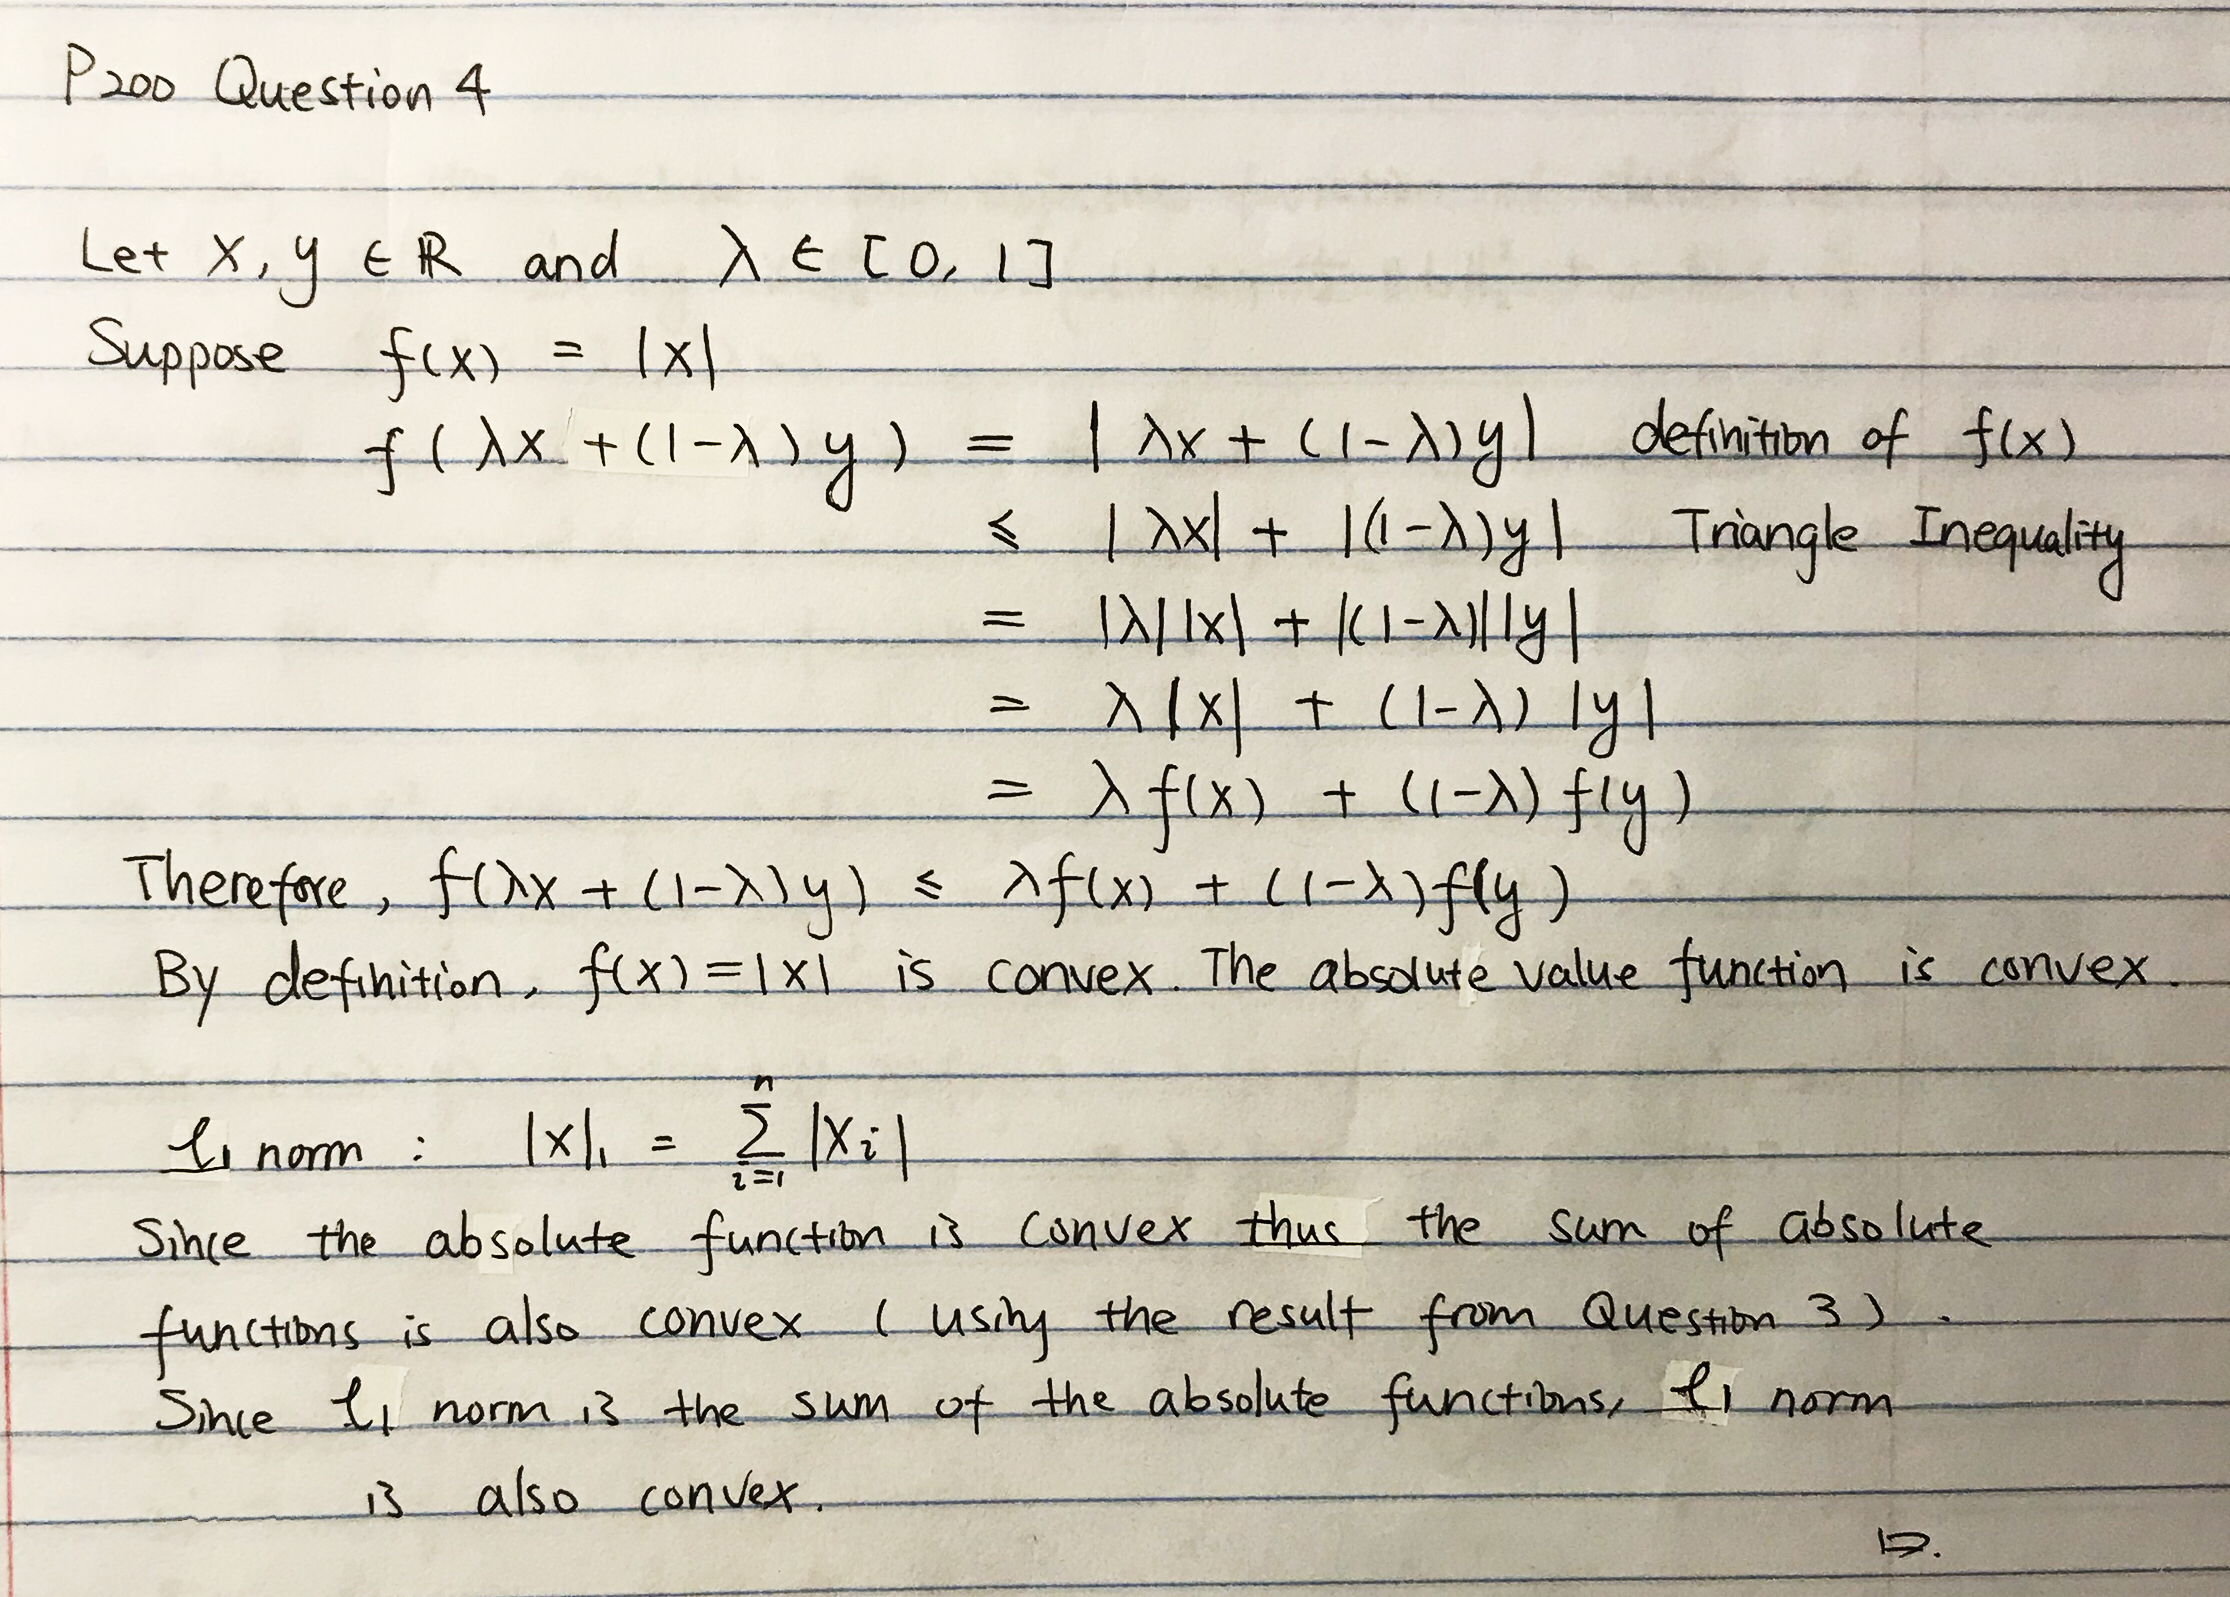 P200 Question 4
Let x, y ∈ ℝ and λ ∈ [0, 1]
Suppose f(x) = |x|
f(λx + (1-λ)y) = |λx + (1-λ)y| definition of f(x)
≤ |λx| + |(1-λ)y| Triangle Inequality
= |λ||x| + |(1-λ)||y|
= λ|x| + (1-λ)|y|
= λf(x) + (1-λ)f(y)
Therefore, f(λx + (1-λ)y) ≤ λf(x) + (1-λ)f(y)
By definition, f(x) = |x| is convex. The absolute value function is convex.
ℓ₁ norm : |x|₁ = ∑ᵢ₌₁ⁿ |xᵢ|
Since the absolute function is convex thus the sum of absolute
functions is also convex (using the result from Question 3).
Since ℓ₁ norm is the sum of the absolute functions, ℓ₁ norm
is also convex.